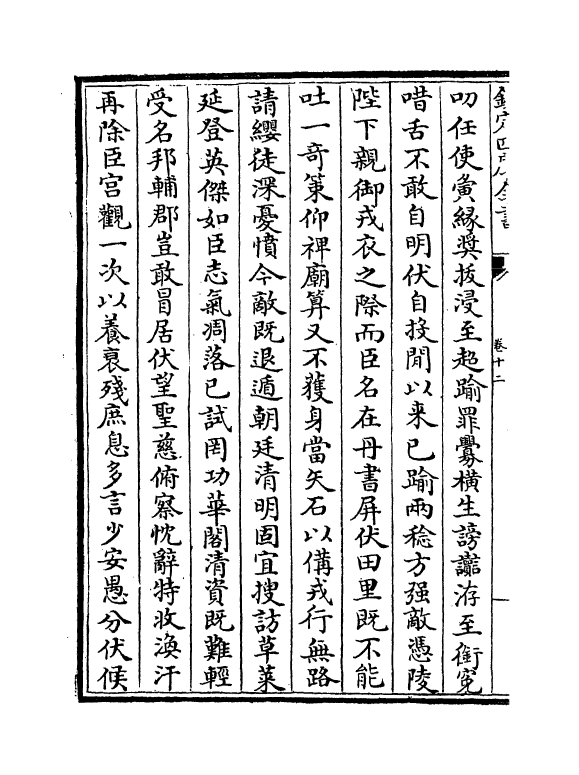 欽定四庫全書
卷十二
叨任使夤縁奨拔浸至超踰罪釁横生謗讟洊至銜寃
唶舌不敢自明伏自投閒以来已踰兩稔方强敵憑陵
陛下親御戎衣之際而臣名在丹書屏伏田里既不能
吐一竒䇿仰裨廟算又不獲身當矢石以備戎行無路
請纓徒深憂憤今敵既退遁朝廷清明固宜搜訪草萊
延登英傑如臣志氣凋落已試罔功華閣清資既難輕
受名邦輔郡豈敢冒居伏望聖慈俯察忱辭特收渙汗
再除臣宫觀一次以養衰殘庶息多言少安愚分伏候